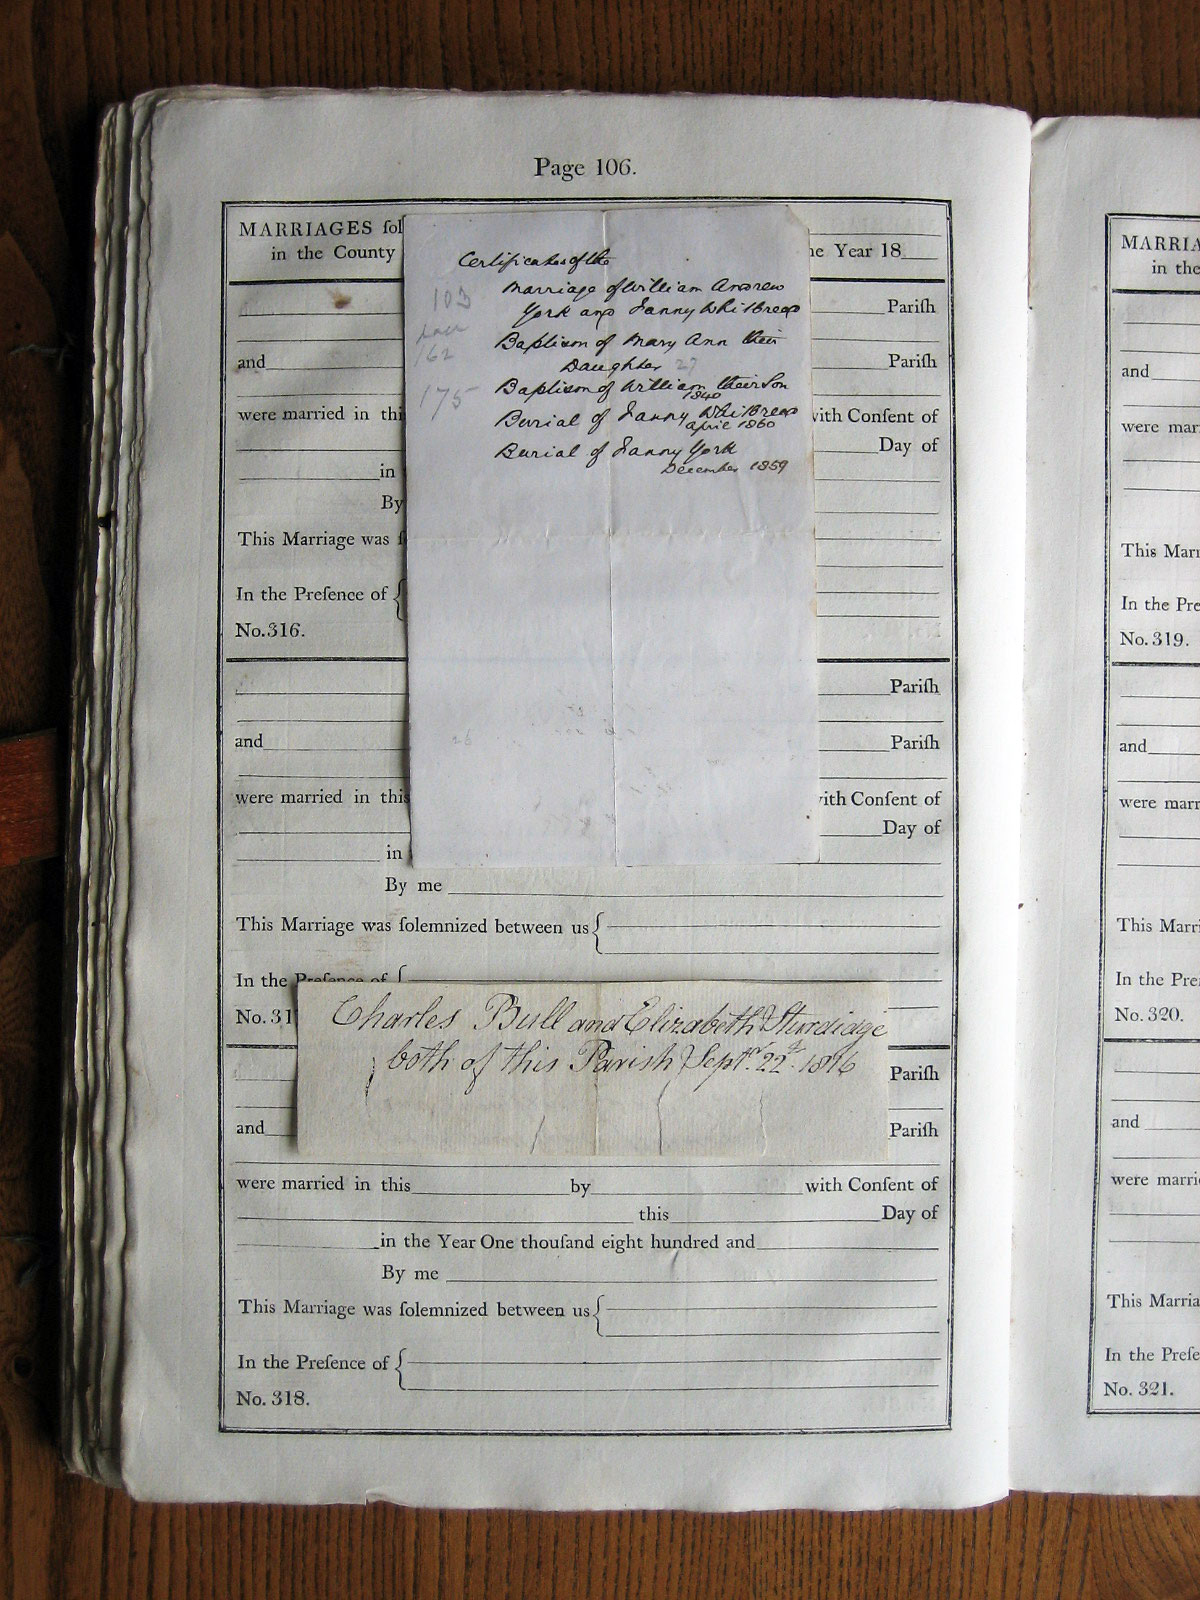 Page 106.
MARRIAGES ſol
in the County
he Year 18
Pariſh
and
Pariſh
were married in thi
with Conſent of
Day of
in
By
This Marriage was ſ
In the Preſence of
No. 316.
Certificates of the
Marriage of William Andrew
York and Fanny Whitbread
Baptism of Mary Ann their
Daughter 27
Baptism of William their Son
1840
Burial of Fanny Whitbread
April 1860
Burial of Fanny York
December 1859
103
162
175
26
Pariſh
and
Pariſh
were married in this
with Conſent of
Day of
in
By me
This Marriage was ſolemnized between us
In the Preſence of
No. 31
Charles Bull and Elizabeth Sturdidge
both of this Parish Septr. 22d. 1816
Pariſh
and
Pariſh
were married in this by with Conſent of
this Day of
in the Year One thouſand eight hundred and
By me
This Marriage was ſolemnized between us
In the Preſence of
No. 318.
MARRIA
in the
and
were mar
This Marr
In the Pre
No. 319.
and
were marr
This Marri
In the Pre
No. 320.
and
were marri
This Marria
In the Preſe
No. 321.